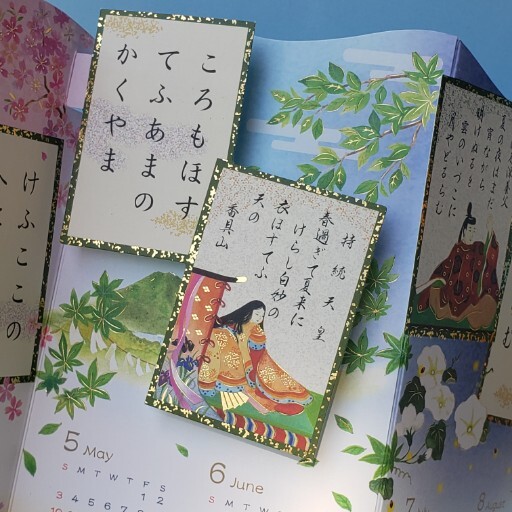 ころもほす
てふあまの
かくやま
持統天皇
春過ぎて夏来に
けらし白妙の
衣ほすてふ
天の
香具山
けふここの
夏の夜はまだ
宵ながら
明けぬるを
雲のいづこに
月やどるらむ
む
5 May
S M T W T F S
1 2
3 4 5 6 7 8 9
10
6 June
S M T W T F S
7
8